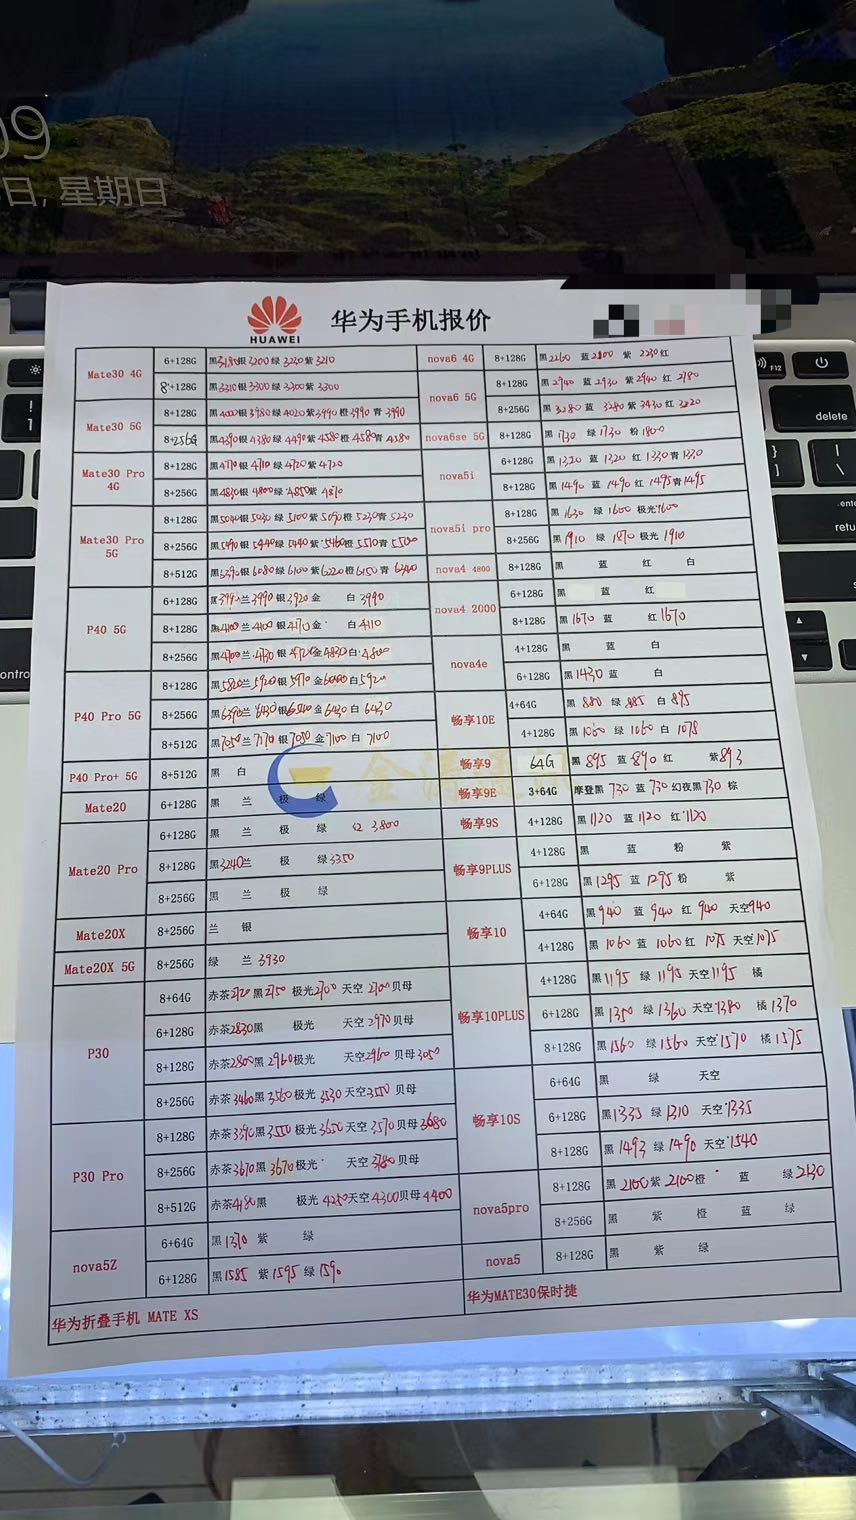 09
日, 星期日
HUAWEI
华为手机报价
F12
delete
Mate30 4G
6+128G 黑3180银3200绿3230紫3210
8+128G 黑3310银3300绿3300紫3300
Mate30 5G
8+128G 黑4000银3980绿4020紫3990橙3990青3990
8+256G 黑4390银4380绿4490紫4580橙4580青4380
Mate30 Pro 4G
8+128G 黑4770银4710绿4720紫4720
8+256G 黑4830银4800绿4850紫4810
Mate30 Pro 5G
8+128G 黑5040银5030绿5100紫5090橙5230青5230
8+256G 黑5490银5440绿5440紫5460橙5510青5500
8+512G 黑6390银6080绿6100紫6220橙6150青6240
P40 5G
6+128G 黑3990兰3990银3920金 白3990
8+128G 黑4100兰4100银4170金 白4110
8+256G 黑4700兰4730银4720金4830白4800
P40 Pro 5G
8+128G 黑5820兰5920银5970金6000白5920
8+256G 黑6390兰6430银6540金6430白6430
8+512G 黑7050兰7170银7030金7100白7100
P40 Pro+ 5G 8+512G 黑 白
Mate20 6+128G 黑 兰 极 绿
Mate20 Pro
6+128G 黑 兰 极 绿 红3800
8+128G 黑3240兰 极 绿3350
8+256G 黑 兰 极 绿
Mate20X 8+256G 兰 银
Mate20X 5G 8+256G 绿 兰3930
P30
8+64G 赤茶2720黑2750极光2700天空2700贝母
6+128G 赤茶2830黑 极光 天空2970贝母
8+128G 赤茶2800黑2960极光 天空2960贝母3050
8+256G 赤茶3460黑3560极光3530天空3550贝母
P30 Pro
8+128G 赤茶3390黑3550极光3650天空3570贝母3680
8+256G 赤茶3670黑3670极光 天空3780贝母
8+512G 赤茶4180黑 极光4250天空4300贝母4400
nova5Z
6+64G 黑1370紫 绿
6+128G 黑1585紫1595绿1590
华为折叠手机 MATE XS
nova6 4G 8+128G 黑2260蓝2200紫2230红
nova6 5G
8+128G 黑2940蓝2930紫2940红2780
8+256G 黑3280蓝3280紫3430红3220
nova6se 5G 8+128G 黑1730绿1730粉1800
nova5i
6+128G 黑1320蓝1320红1330青1330
8+128G 黑1490蓝1490红1495青1495
nova5i pro
8+128G 黑1630绿1600极光1600
8+256G 黑1910绿1870极光1910
nova4 4800 8+128G 黑 蓝 红 白
nova4 2000
6+128G 蓝 红
8+128G 黑1670蓝 红1670
nova4e
4+128G 黑 蓝 白
6+128G 黑1430蓝 白
畅享10E
4+64G 黑880绿885白895
4+128G 黑1060绿1060白1078
畅享9 64G 黑895蓝890红 紫893
畅享9E 3+64G 摩登黑730蓝730幻夜黑730棕
畅享9S 4+128G 黑1120蓝1120红1120
畅享9PLUS
4+128G 黑 蓝 粉 紫
6+128G 黑1295蓝1295粉 紫
畅享10
4+64G 黑940蓝940红940天空940
4+128G 黑1060蓝1060红1075天空1075
畅享10PLUS
4+128G 黑1195绿1195天空1195橘
6+128G 黑1350绿1360天空1380橘1370
8+128G 黑1560绿1560天空1570橘1575
畅享10S
6+64G 黑 绿 天空
6+128G 黑1335绿1310天空1335
8+128G 黑1493绿1490天空1540
nova5pro
8+128G 黑2100紫2100橙 蓝 绿2130
8+256G 黑 紫 橙 蓝 绿
nova5 8+128G 黑 紫 绿
华为MATE30保时捷